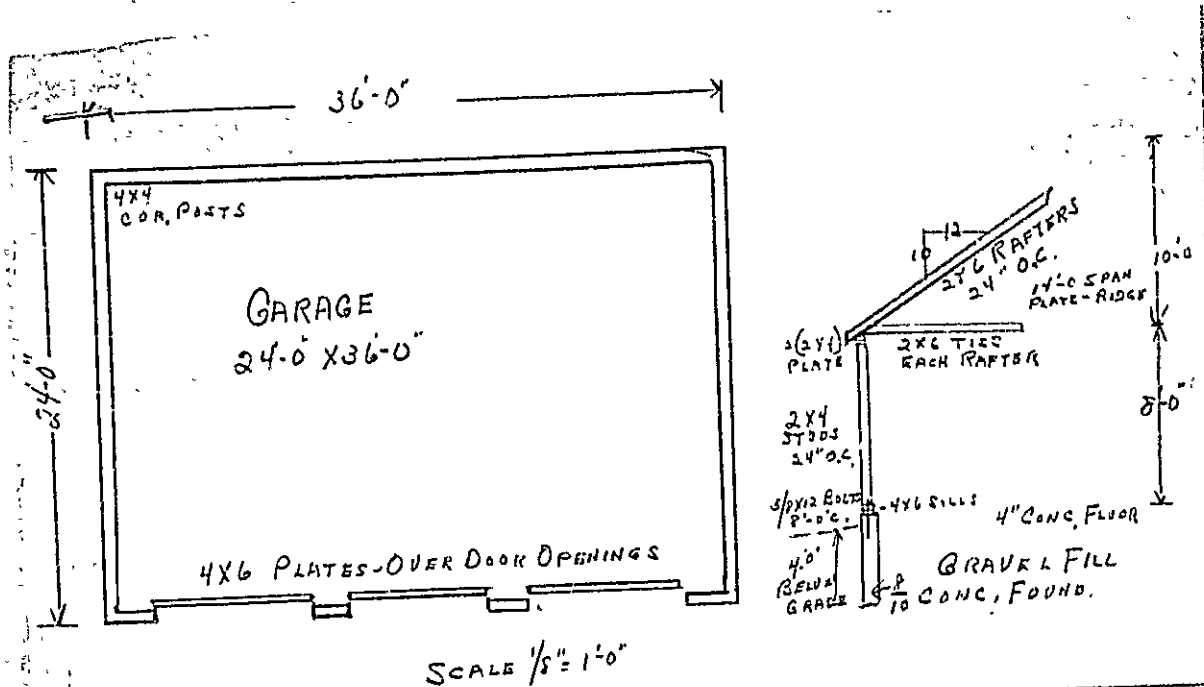 36'-0"
4X4
COR. POSTS
GARAGE
24'-0" X 36'-0"
24'-0"
4X6 PLATES-OVER DOOR OPENINGS
SCALE 1/8" = 1'-0"
12
10
2X6 RAFTERS
24" O.C.
14'-0 SPAN
PLATE-RIDGE
10'-0
PLATE
2X6 TIES
EACH RAFTER
8'-0"
2X4
STUDS
24" O.C.
5/8X12 BOLTS
8'-0"C.
4X6 SILLS
4" CONC. FLOOR
4'.0"
BELOW
GRADE
GRAVEL FILL
8
10 CONC. FOUND.